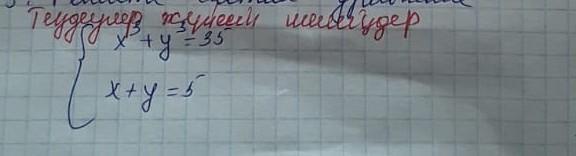 Теңдеулер жүйесін шешіңдер
x³ + y³ = 35
x + y = 5